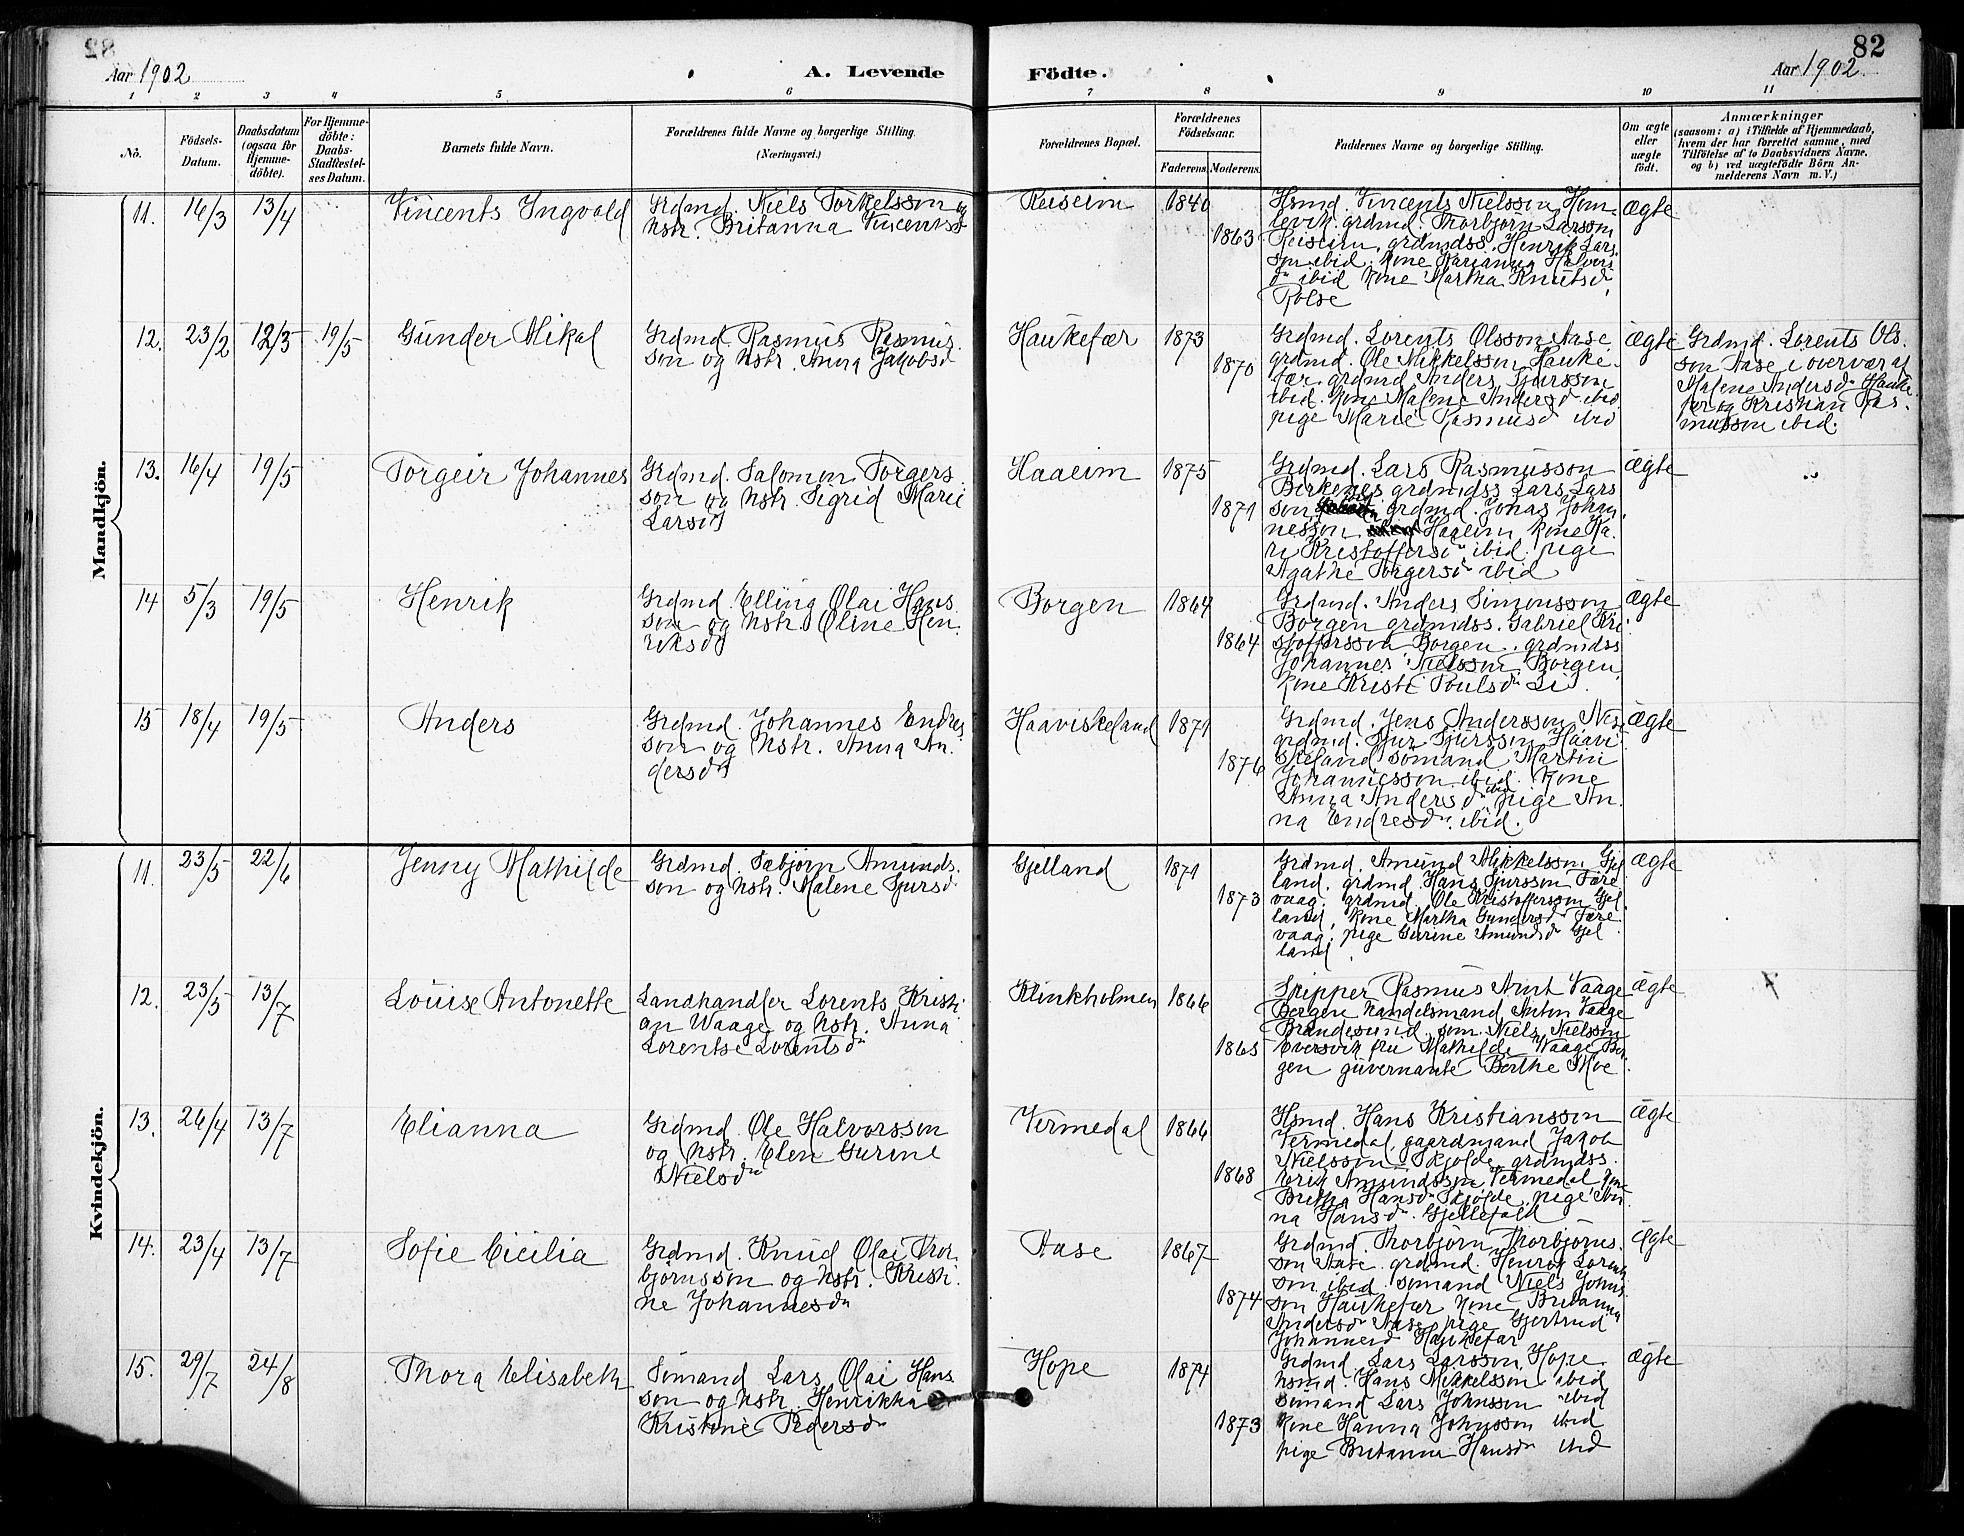 82
Aar 1902
A. Levende Födte.
Aar 1902
1 2 3 4 5 6 7 8 9 10 11
No.
Födsels-Datum.
Daabsdatum (ogsaa for Hjemme-döbte).
For Hjemme-döbte: Daabs-Stadfæstel-ses Datum.
Barnets fulde Navn.
Forældrenes fulde Navne og borgerlige Stilling.
(Næringsvei.)
Forældrenes Bopæl.
Forældrenes Födselsaar.
Faderens. Moderens.
Faddernes Navne og borgerlige Stilling.
Om ægte eller uægte födt.
Anmærkninger
(saasom: a) i Tilfælde af Hjemmedaab,
hvem der har forrettet samme, med
Tilföielse af to Daabsvidners Navne,
og b) ved uægtefödte Börn An-
melderens Navn m. V.)
Mandkjön.
11. 16/3 13/4 Vincents Ingvald
Grdmd. Niels Torkelsson og
hstr. Britanna Vincentsd
Reiseim 1840 1863
Hsmd. Vincents Nielsson Hom-
levik. grdmd. Thorbjörn Larsson
Reiseim, grdmdss. Henrik Lars
son ibid. kone Karianna Halvors
dn ibid kone Martha Knutsdn
Rolse
ægte
12. 23/2 12/3 19/5 Gunder Mikal
Grdmd. Rasmus Rasmus.
son og hstr. Anna Jakobsd
Haukefær 1873 1870
Grdmd. Lorents Olsson Aase
grdmd. Ole Mikkelsson Hauke.
fær. grdmd Anders Sjursson
ibid. kone Malene Andersd ibid
pige Marie Rasmusd ibid
ægte
Grdmd. Lorents Ols.
son Aase i overvær af
Malene Andersdn Hauke
fær og Kristian Ras.
musson ibid.
13. 16/4 19/5 Torgeir Johannes
Grdmd. Salomon Torgers
son og hstr. Sigrid Marie
Larsd
Haaeim 1875 1871
Grdmd. Lars Rasmusson
Birkenes grdmdss Lars Lars
son ibid grdmd. Jonas Johan.
nesson Haaeim kone Ka.
ri Kristoffersdn ibid. pige
Agathe Torgersdn ibid
ægte
14 5/3 19/5 Henrik
Grdmd. Elling Olai Hans
son og hstr. Oline Hen.
riksd
Borgen 1864 1864
Grdmd. Anders Simonsson
Borgen grdmdss. Gabriel Kri
stoffersson Borgen. grdmdss
Johannes Nielsson Borgen,
kone Kristi Poulsdn Li.
ægte
15 18/4 19/5 Anders
Grdmd. Johannes Endres
son og hstr. Anna An.
dersd
Haaviskeland 1871 1876
Grdmd. Jens Andersson
grdmd. Sjur Sjursson Haavi
skeland sömand Martin
Johannesson ibid. kone
Anna Andersdn ibid pige An.
na Endresdn. ibid.
ægte
Kvindekjön.
11. 23/5 22/6 Jenny Mathilde
Grdmd. Sæbjörn Amunds.
son og hstr. Malene Sjursd.
Gjelland 1871 1873
Grdmd. Amund Mikkelsson Gjel
land. grdmd. Hans Sjursson Fære
vaag. grdmd. Ole Kristoffersson Gjel.
land, kone Martha Gundersdn Fære
vaag, pige Gurine Amundsdn Gjel
land
ægte
12. 23/5 13/7 Louise Antonette
Landhandler Lorents Kristi
an Waage og hstr. Anna
Lorentse Lorentsdn
Klinkholmen 1866 1865
Skipper Rasmus Arnt Vaage
Bergen handelsmand Anton Vaage
Brandesund, söm. Niels Nielsson
Eversvik fru Mathilde Vaage Ber
gen guvernante Berthe Moe
ægte
13. 26/4 13/7 Elianna
Grdmd. Ole Halvorsson
og hstr. Elen Gurine
Nielsdn
Vermedal 1866 1868
Hsmd. Hans Kristiansson
Vermedal, gaardmand Jakob
Nielsson Skjolde grdmdss.
Erik Amundsson Vermedal kone
Britha Hansdn Skjolde, pige An
na Hansdn. Gjellefald
ægte
14. 23/4 13/7 Sofie Cicilia
Grdmd. Knud Olai Thor.
björnsson og hstr. Kristi.
ne Johannesdn
Aase 1867 1874
Grdmd. Thorbjörn Thorbjörns.
son Aase. grdmd. Henrik Lorents
son ibid. sömand Niels Johns
son Haukefær kone Britanna
Andersdn Aase, pige Gjertrud
Johannesd Haukefær
ægte
15. 29/7 24/8 Thora Elisabeth
Sömand Lars Olai Hans
son og hstr. Henrikka
Kristine Pedersdn
Hope 1874 1873
Grdmd. Lars Larsson Hope.
hsmd. Hans Mikkelsson ibid
sömand Lars Johnsson ibid
kone Hanna Johnsson ibid
pige Britanna Hansdn ibid
ægte